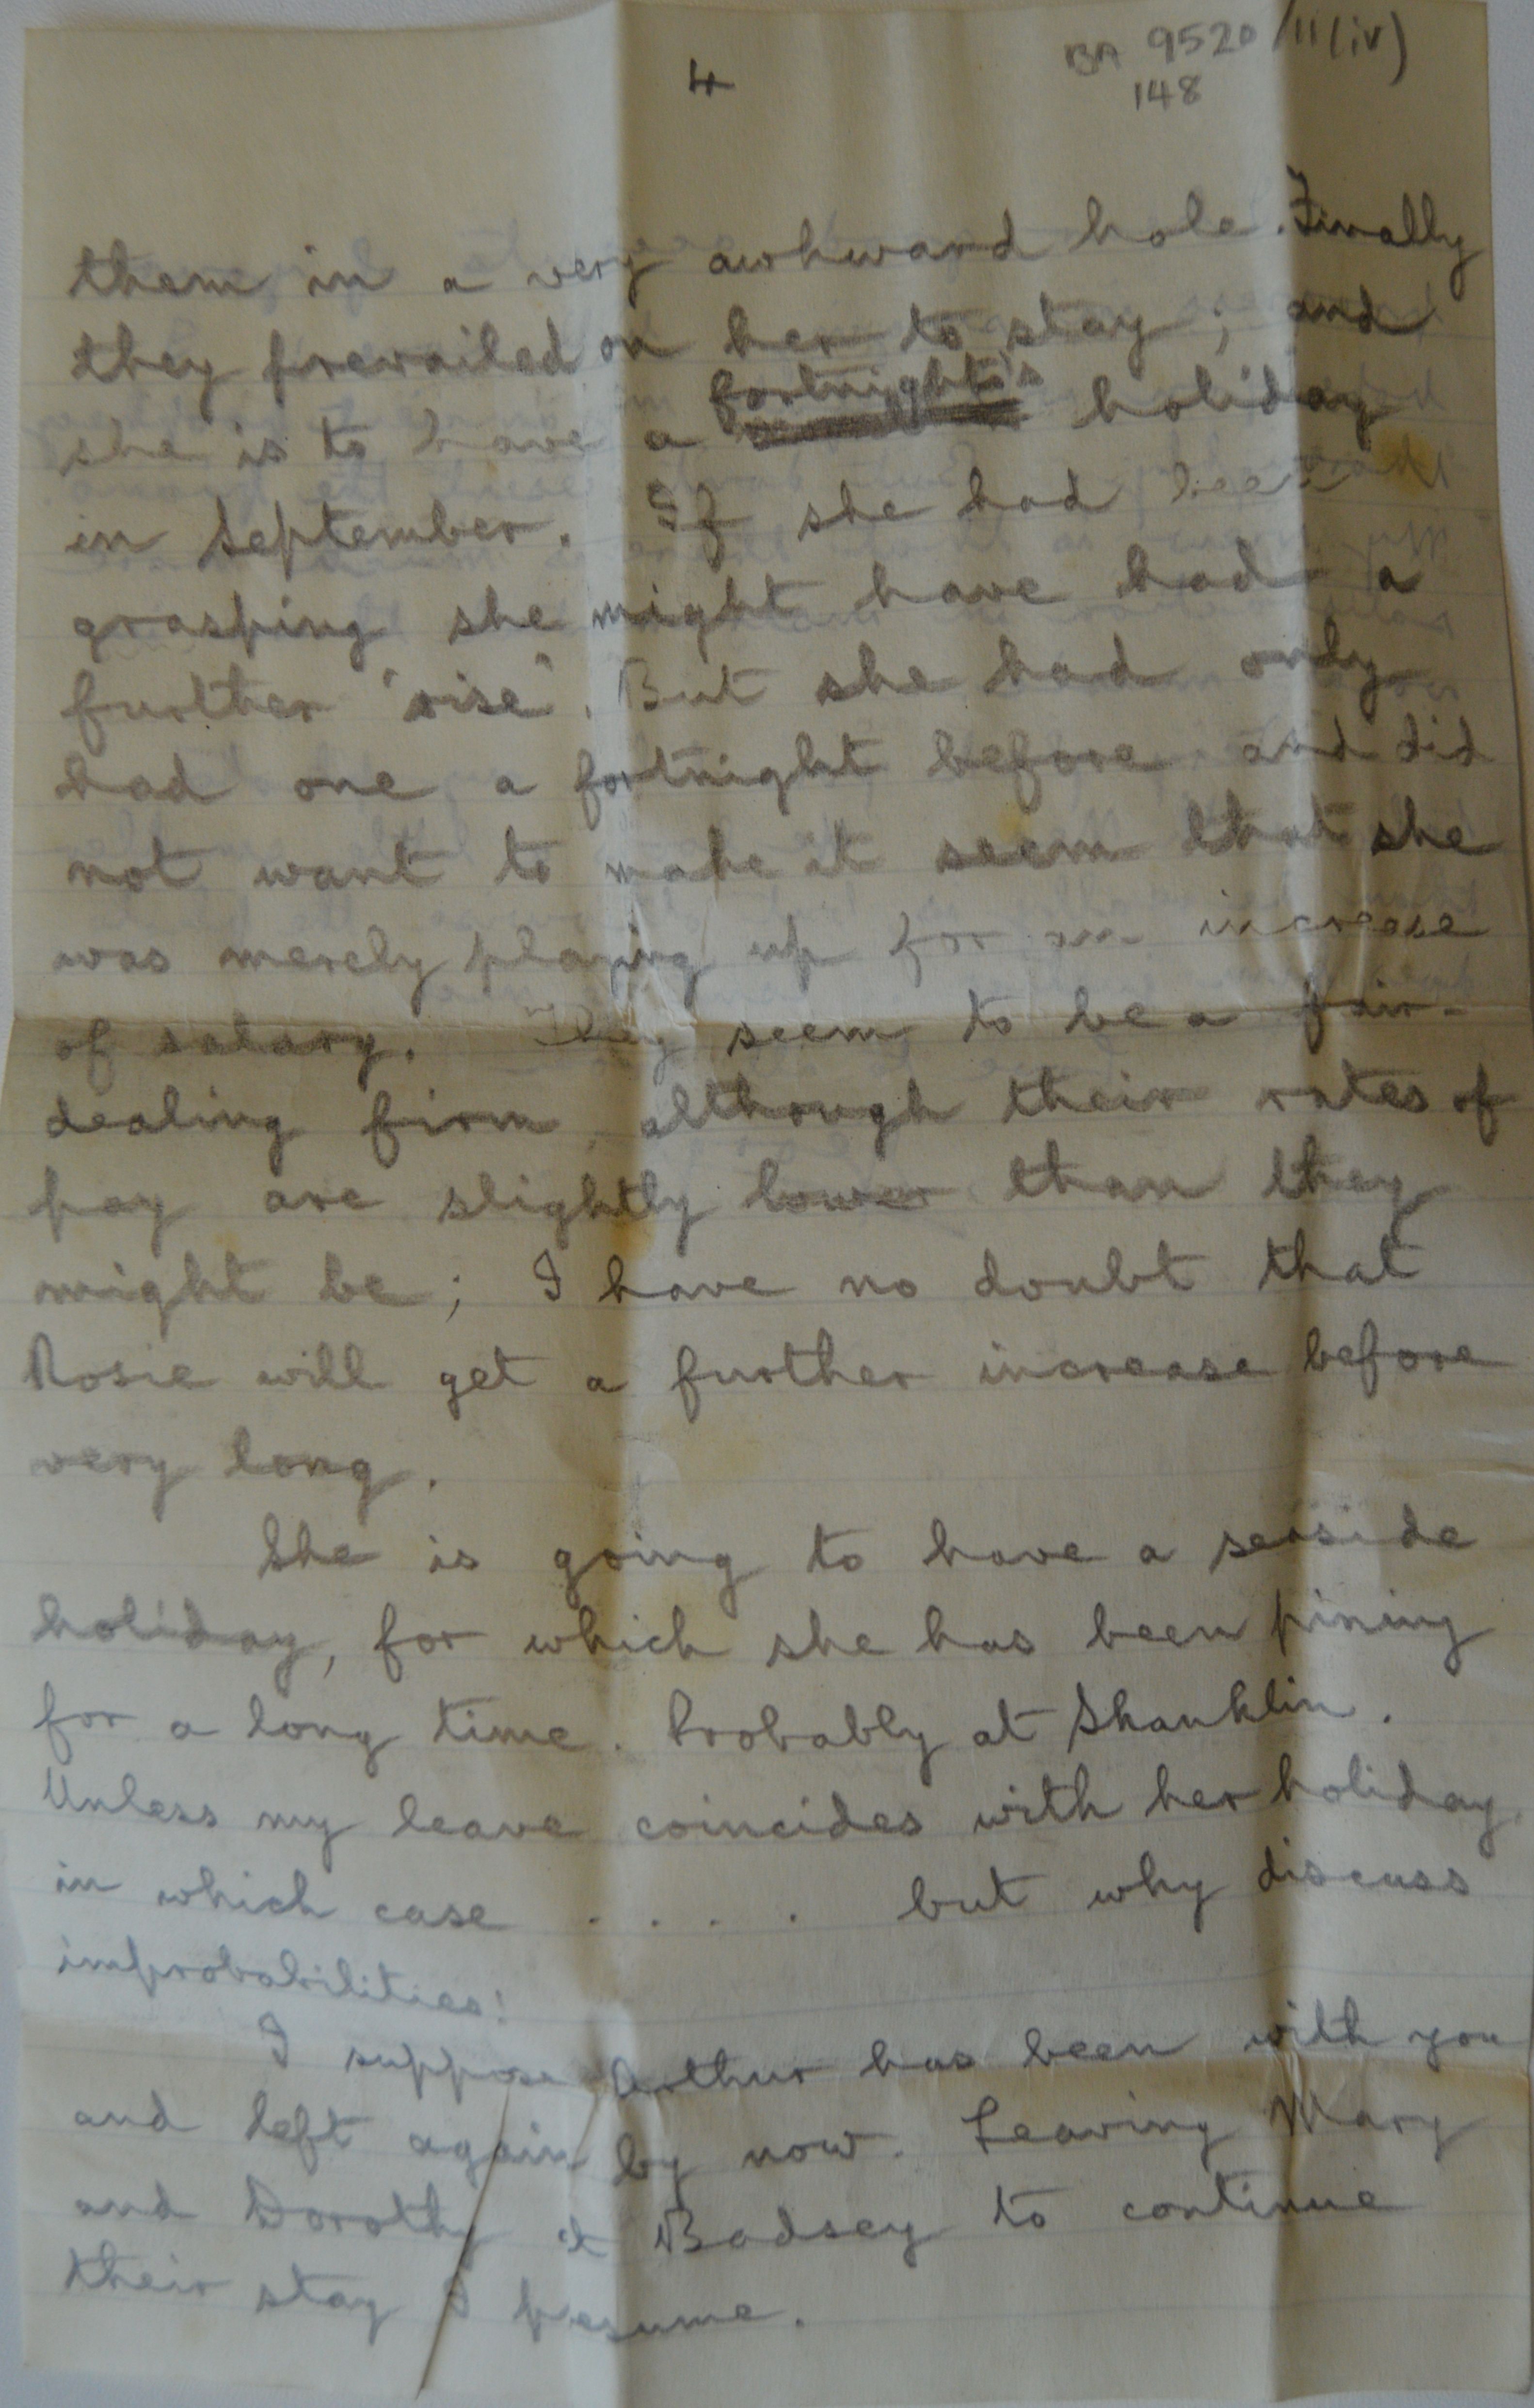 4
BA 9520/11(iv)
148
them in a very awkward hole. Finally
they prevailed on her to stay; and
fortnight's
she is to have a holiday
in September. If she had been
grasping she might have had a
further 'rise'. But she had only
had one a fortnight before and did
not want to make it seem that she
was merely playing up for an increase
of salary. They seem to be a fair-
dealing firm, although their rates of
pay are slightly lower than they
might be; I have no doubt that
Rosie will get a further increase before
very long.
She is going to have a seaside
holiday, for which she has been pining
for a long time. Probably at Shanklin.
Unless my leave coincides with her holiday,
in which case . . . . but why discuss
improbabilities!
I suppose Arthur has been with you
and left again by now. Leaving Mary
and Dorothy at Badsey to continue
their stay I presume.